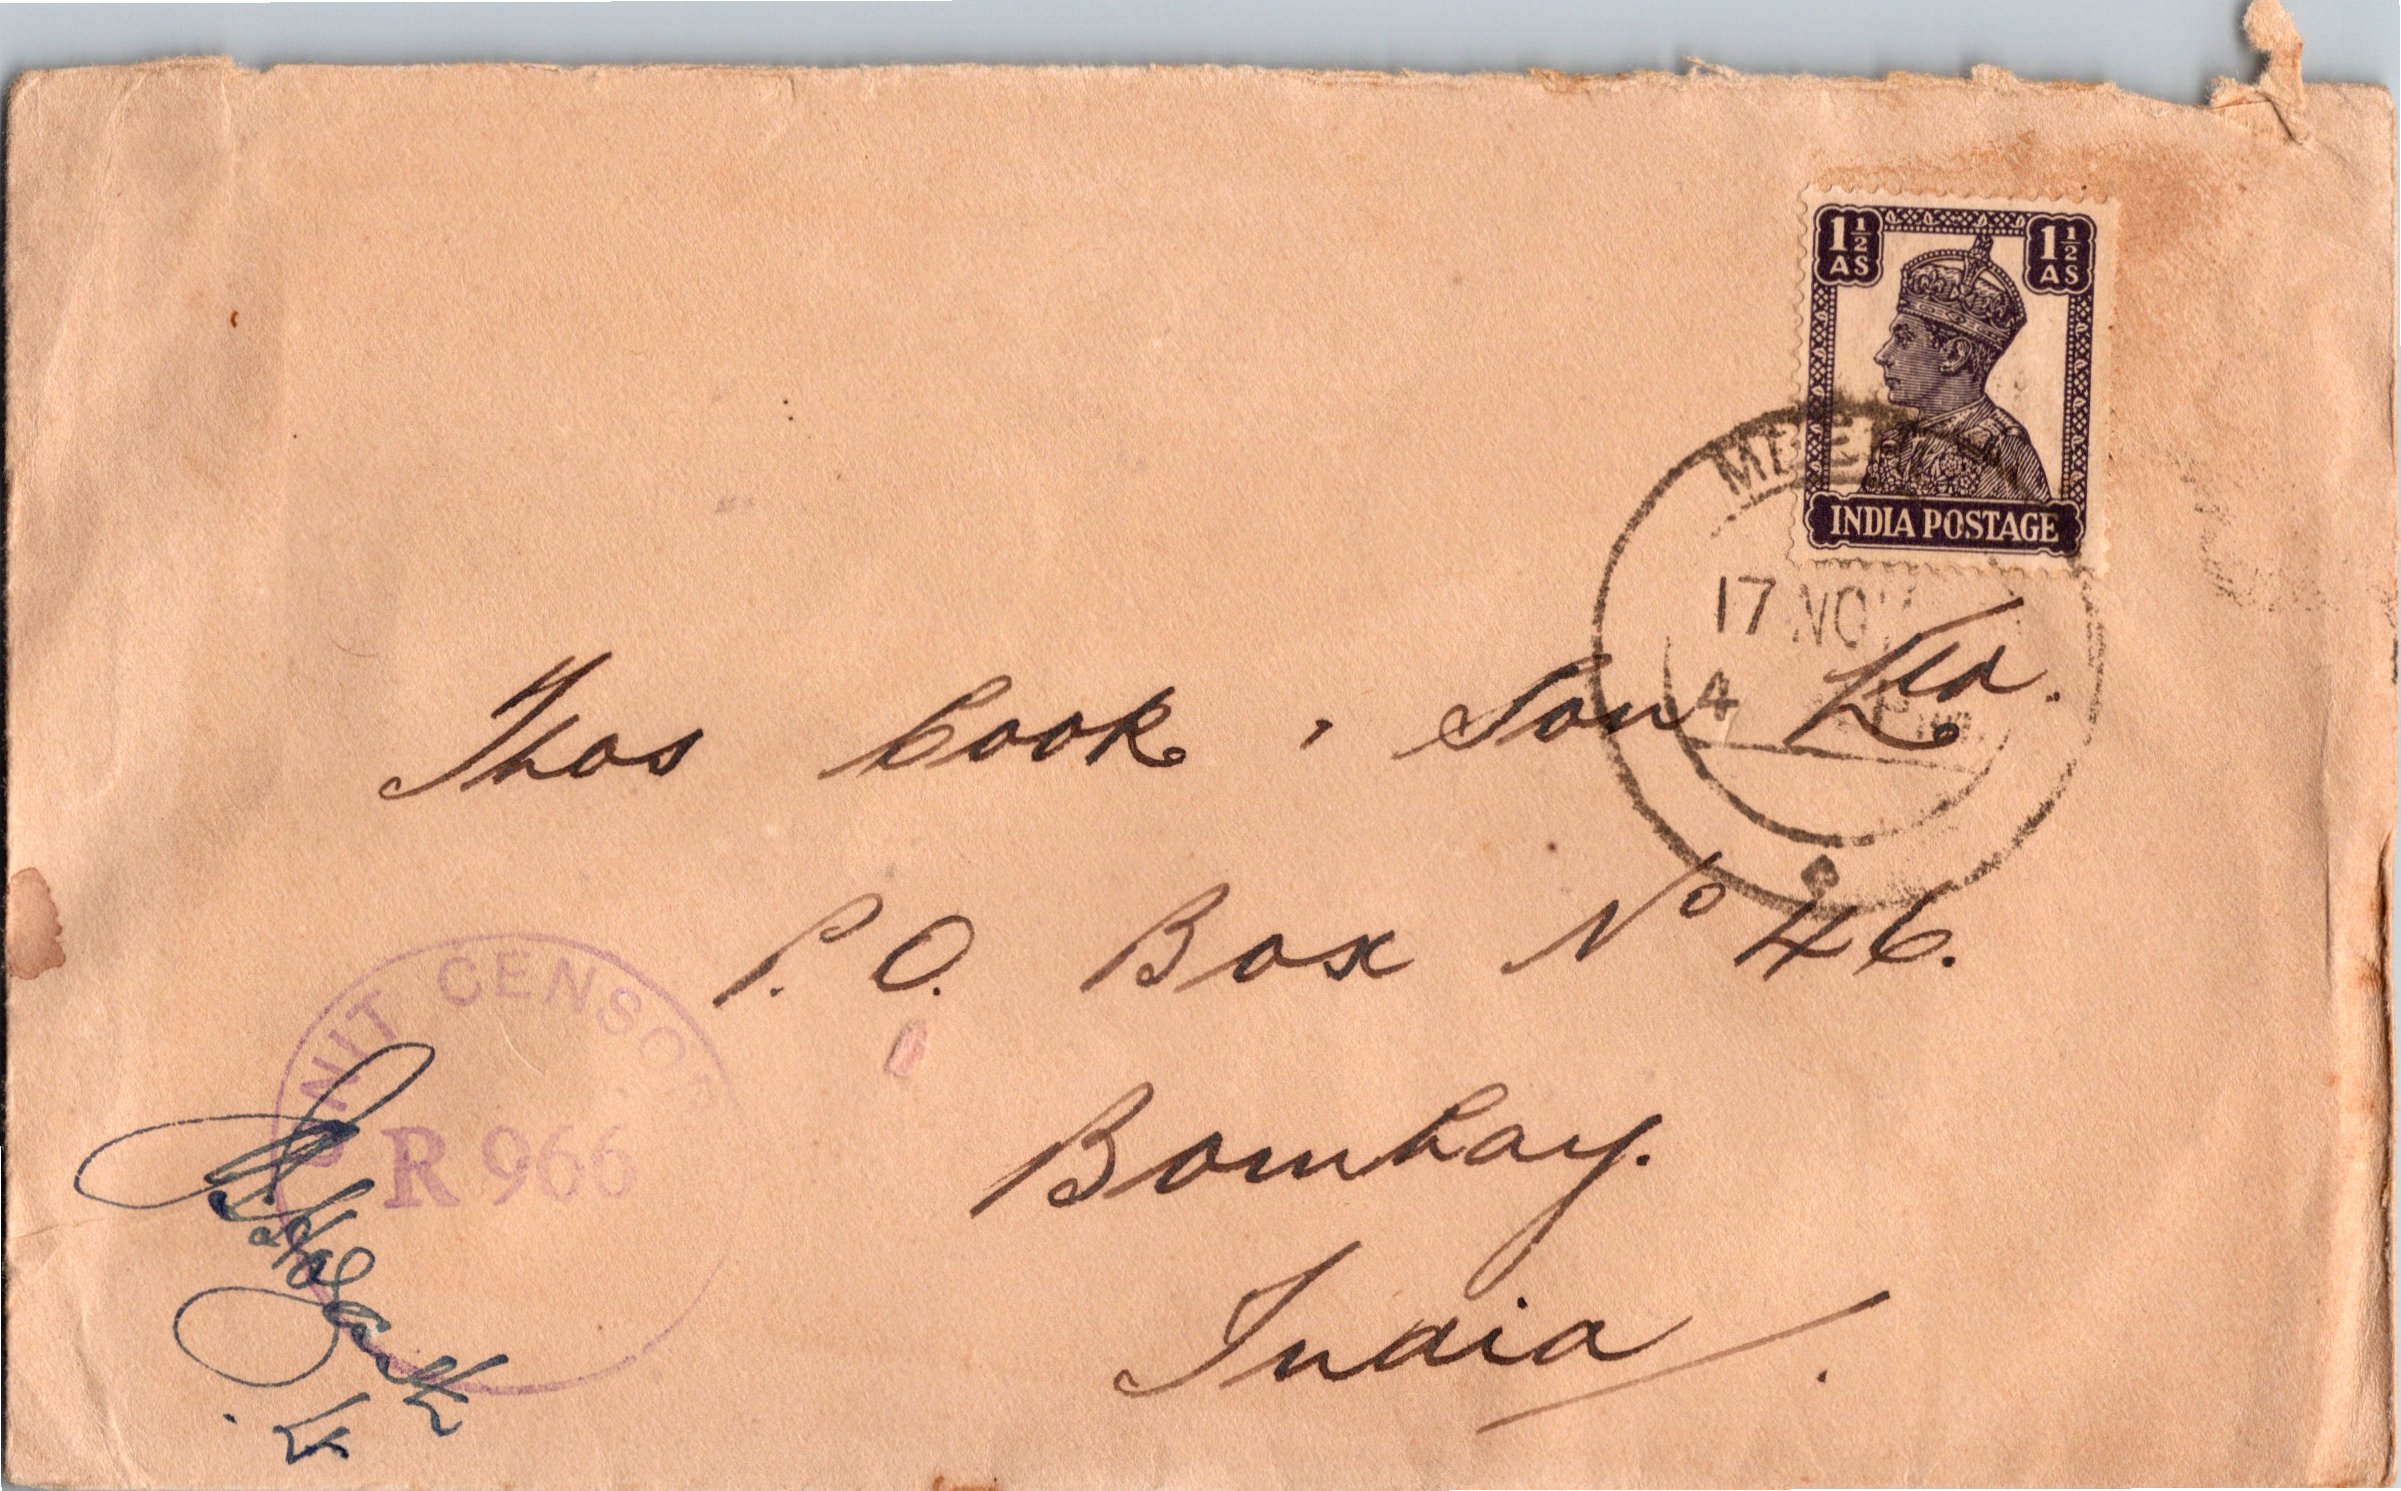 1½ AS 1½ AS
INDIA POSTAGE
17 NOV
4 PM
Thos Cook, Son Ltd.
P.O. Box Nº 46.
Bombay.
India
UNIT CENSOR
R 966